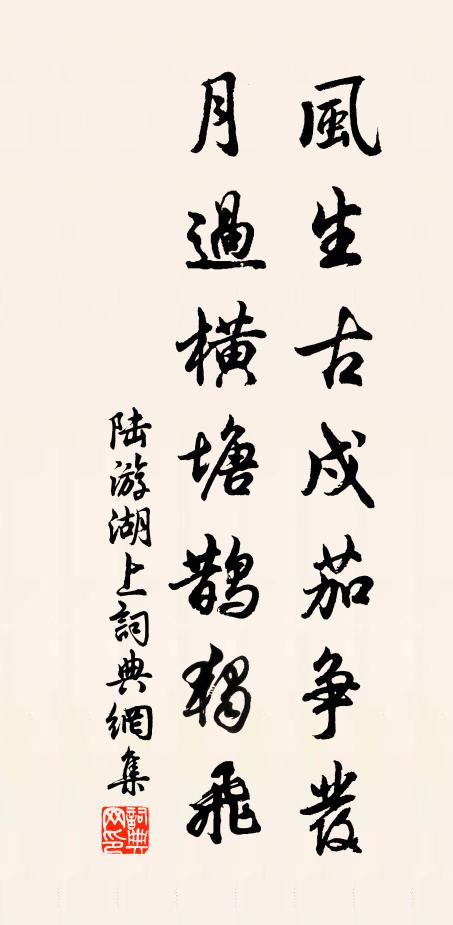 風生古戍茄争發
月過橫塘鵲獨飛
陆游湖上詞典網集
詞典网印